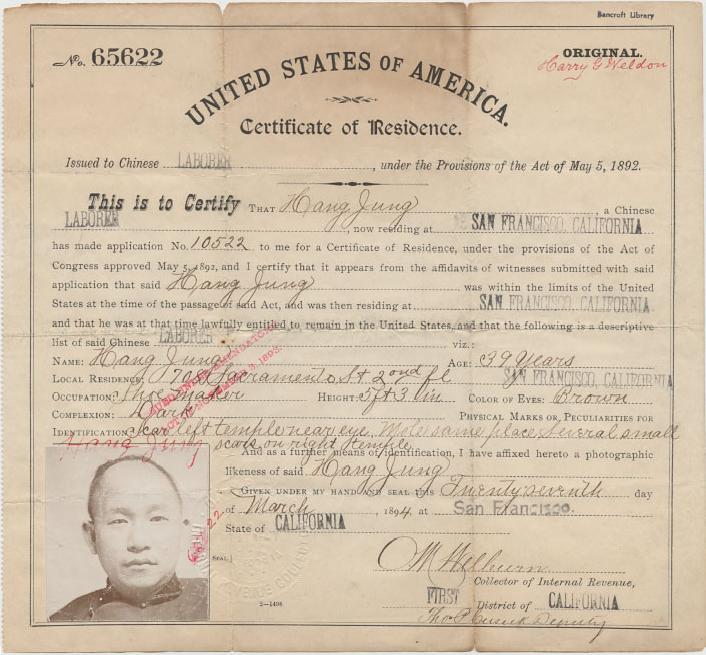 Bancroft Library
No. 65622
ORIGINAL.
Harry G Weldon
UNITED STATES OF AMERICA.
Certificate of Residence.
Issued to Chinese LABORER, under the Provisions of the Act of May 5, 1892.
This is to Certify THAT Hang Jung a Chinese
LABORER, now residing at SAN FRANCISCO, CALIFORNIA
has made application No. 10522 to me for a Certificate of Residence, under the provisions of the Act of
Congress approved May 5, 1892, and I certify that it appears from the affidavits of witnesses submitted with said
application that said Hang Jung was within the limits of the United
States at the time of the passage of said Act, and was then residing at SAN FRANCISCO, CALIFORNIA
and that he was at that time lawfully entitled to remain in the United States, and that the following is a descriptive
list of said Chinese LABORER viz.:
NAME: Hang Jung AGE: 39 Years
LOCAL RESIDENCE: 706 Sacramento St 2ond fl SAN FRANCISCO, CALIFORNIA
OCCUPATION: Shoe maker HEIGHT: 5 ft 3 in COLOR OF EYES: Brown
COMPLEXION: Dark PHYSICAL MARKS OR PECULIARITIES FOR
IDENTIFICATION: Scar left temple near eye. Mole same place. Several small
scars on right temple
ISSUED UNDER AMENDATORY
ACT OF NOVEMBER 3, 1893.
Hang Jung
And as a further means of identification, I have affixed hereto a photographic
likeness of said Hang Jung
GIVEN UNDER MY HAND AND SEAL this Twenty seventh day
of March, 1894, at San Francisco.
State of CALIFORNIA
SEAL
O M Welburn
Collector of Internal Revenue,
FIRST District of CALIFORNIA
Tho P Cusick Deputy
2—1496